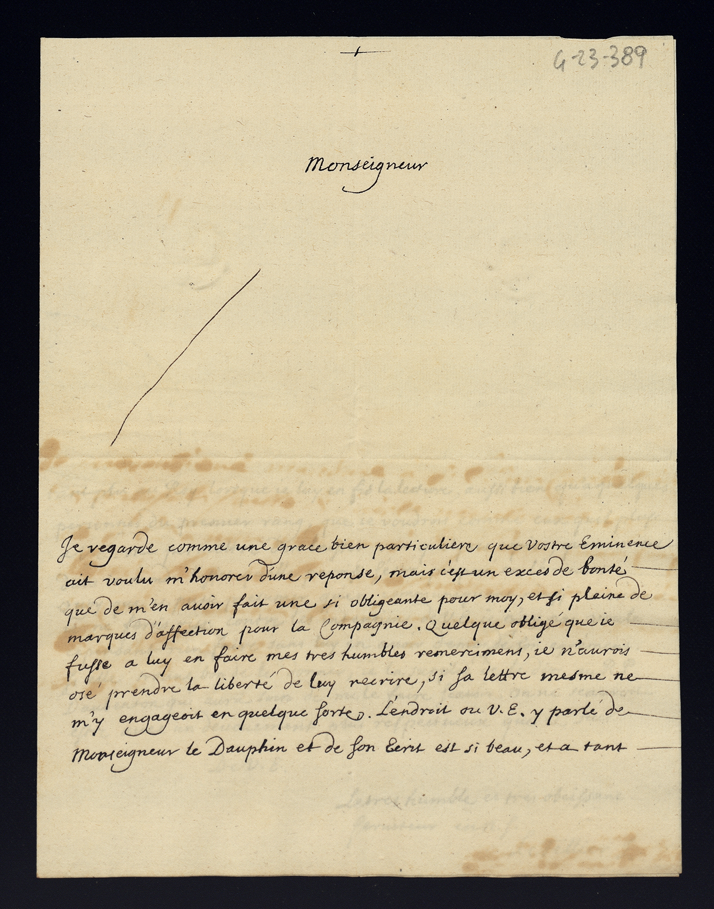 G-23-389
Monseigneur
Je regarde comme une grace bien particuliere que Vostre Eminence
ait voulu m'honorer d'une reponse, mais c'est un exces de bonté
que de m'en avoir fait une si obligeante pour moy, et si pleine de
marques d'affection pour la Compagnie. Quelque obligé que ie
fusse a luy en faire mes tres humbles remercimens, ie n'aurois
osé prendre la liberté de luy recrire, si sa lettre mesme ne
m'y engageoit en quelque sorte. L'endroit ou V.E. y parle de
Monseigneur le Dauphin et de son Ecrit est si beau, et a tant
Le tres humble et tres obeissant